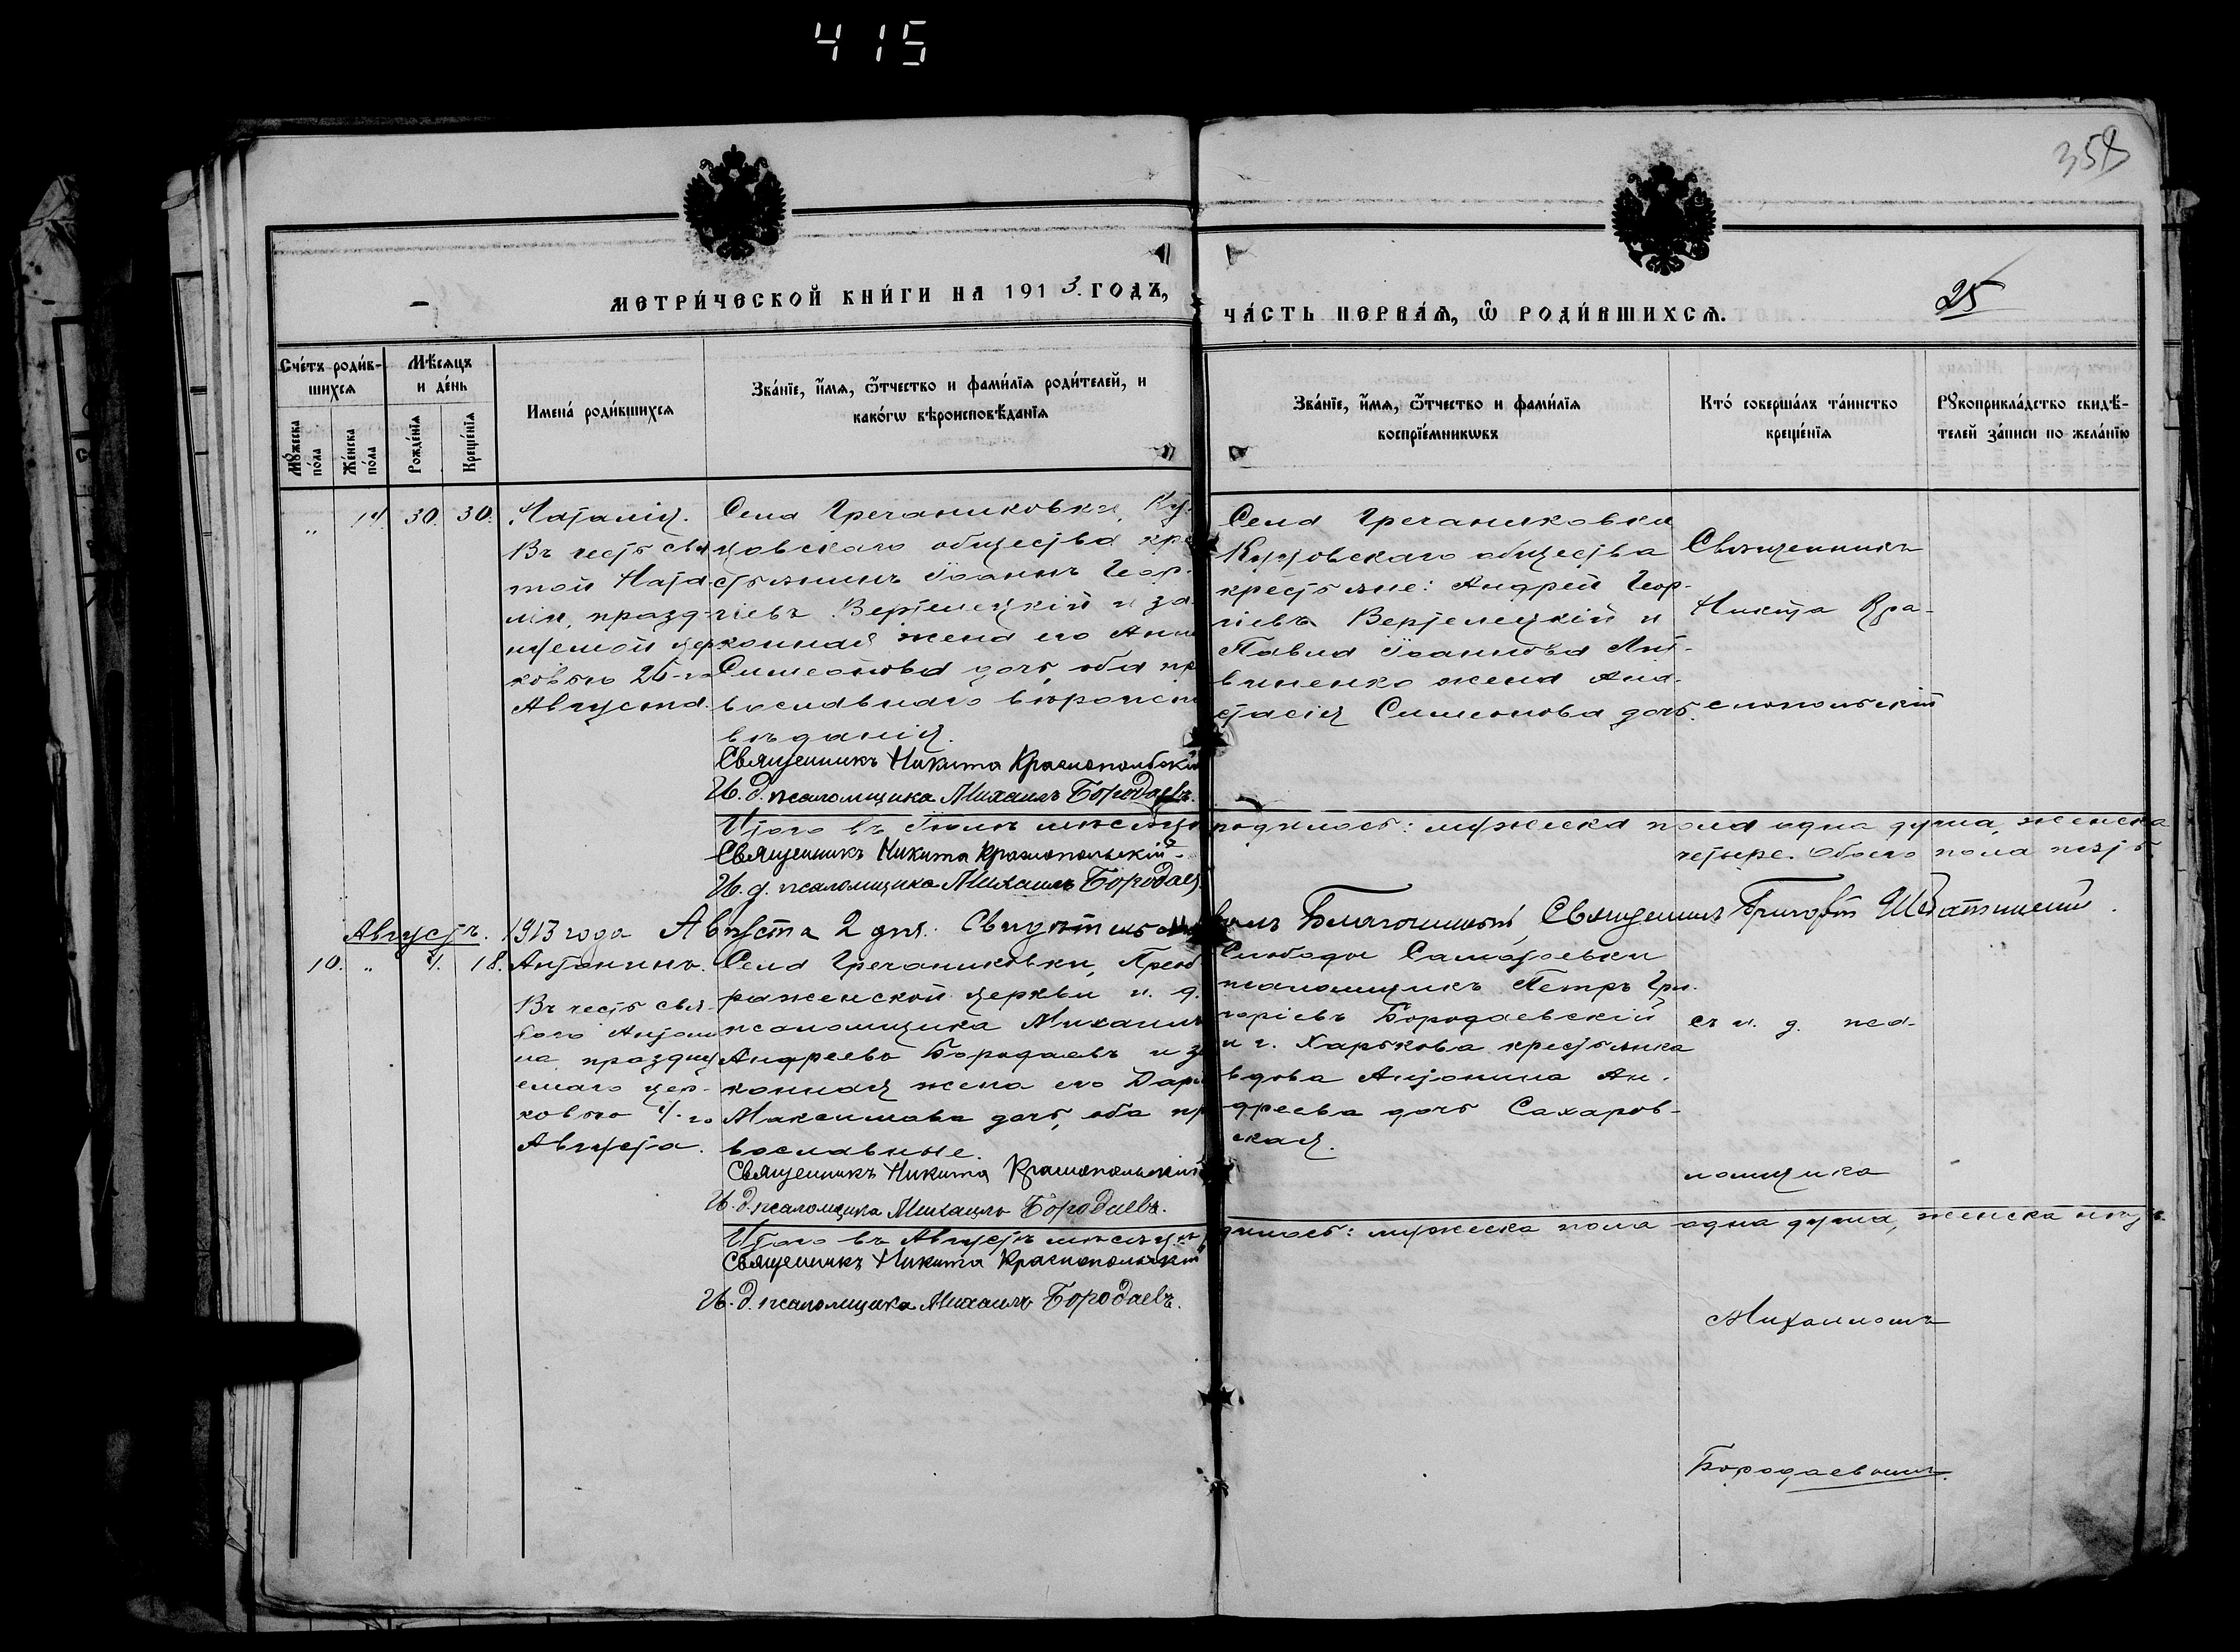 415
358
МЕТРИ́ЧЕСКОЙ КНИ́ГИ НА 1913. ГОДЪ,
ЧА́СТЬ ПЕРВА́Ѧ, Ѡ҆ РОДИ́ВШИХСѦ.
25
Сче́тъ роди́в-
шихся
Мѣ́сяцъ
и де́нь
Му́жеска
по́ла
Же́нска
по́ла
Рожде́нїя
Креще́нїя
Имена̀ роди́вшихся
Зва́нїе, и́мѧ, ѻ҆́тчество и фами́лїѧ роди́телей, и
како́гѡ вѣроисповѣ́данїѧ
Зва́нїе, и́мѧ, ѻ҆́тчество и фами́лїѧ
воспрїе́мникѡвъ
Кто̀ соверша́лъ та́инство
креще́нїѧ
Рукоприкла́дство свидѣ́-
телей за́писи по жела́нїю
„ 14 30. 30.
Наталія.
Въ честь свя
той Ната
ліи, празд-
нуемой цер
ковью 26-го
Августа.
Села Гречаниковки, Ку-
цовскаго общества кре
стьянинъ Іоаннъ Геор-
гіевъ Вертелецкій и за
конная жена его Анна
Симеонова дочь, оба пр
вославнаго вѣроиспо
вѣданія.
Священникъ Никита Краснопольскій
И. д. псаломщика Михаилъ Бородаевъ.
Села Гречаниковки
Куцовскаго общества
крестьяне: Андрей Геор-
гіевъ Вертелецкій и
Павла Іоаннова Лит-
виненко жена Ана-
стасія Симеонова дочь.
Священникъ
Никита Кра-
снопольскій
Итого въ Іюлѣ мѣсяцѣ родилось: мужеска пола одна душа, женска
четыре. Обоего пола пять.
Священникъ Никита Краснопольскій
И. д. псаломщика Михаилъ Бородаев
Августъ.
1913 года Августа 2 дня. Благочинный, Священникъ Григорій
10. „ 4. 18.
Антонинъ.
Въ честь свя-
того Антони
на, праздну
емаго цер-
ковью 4-го
Августа.
Села Гречаниковки, Преоб
раженской церкви и. д.
псаломщика Михаилъ
Андреевъ Бородаевъ и за
конная жена его Дарі
Максимова дочь, оба пр
вославные.
Священникъ Никита Краснопольскій
И. д. псаломщика Михаилъ Бородаевъ.
Слободы Самотоевки
псаломщикъ Петръ Гри-
горіевъ Бородаевскій
и г. Харькова крестьянка
вдова Антонина Ан-
дреева дочь Сахаров-
ская.
съ и. д. пса-
ломщика
Михаиломъ
Бородаевымъ.
Итого въ Августѣ мѣсяцѣ родилось: мужеска пола одна душа, женска нѣтъ.
Священникъ Никита Краснопольскій
И. д. псаломщика Михаилъ Бородаевъ.